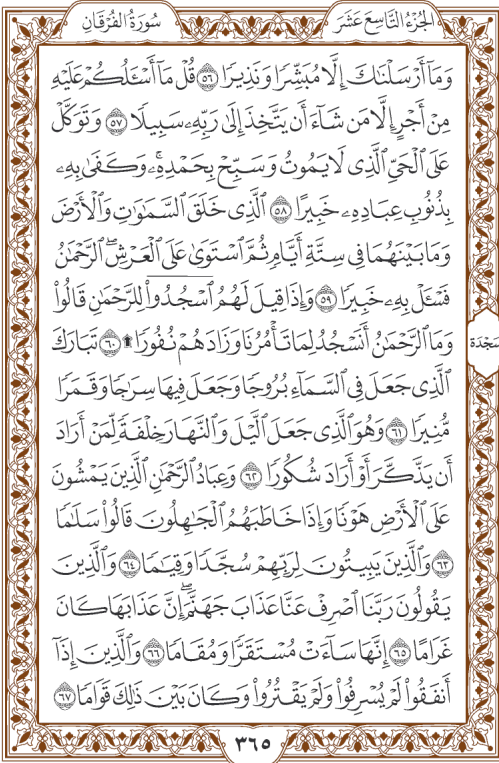 سُورَةُ الفُرْقَانِ
الجُزْءُ التَّاسِعَ عَشَرَ
وَمَآ أَرْسَلْنَٰكَ إِلَّا مُبَشِّرًا وَنَذِيرًا ۝٥٦ قُلْ مَآ أَسْـَٔلُكُمْ عَلَيْهِ
مِنْ أَجْرٍ إِلَّا مَن شَآءَ أَن يَتَّخِذَ إِلَىٰ رَبِّهِۦ سَبِيلًا ۝٥٧ وَتَوَكَّلْ
عَلَى ٱلْحَىِّ ٱلَّذِى لَا يَمُوتُ وَسَبِّحْ بِحَمْدِهِۦ ۚ وَكَفَىٰ بِهِۦ
بِذُنُوبِ عِبَادِهِۦ خَبِيرًا ۝٥٨ ٱلَّذِى خَلَقَ ٱلسَّمَٰوَٰتِ وَٱلْأَرْضَ
وَمَا بَيْنَهُمَا فِى سِتَّةِ أَيَّامٍ ثُمَّ ٱسْتَوَىٰ عَلَى ٱلْعَرْشِ ۖ ٱلرَّحْمَٰنُ
فَسْـَٔلْ بِهِۦ خَبِيرًا ۝٥٩ وَإِذَا قِيلَ لَهُمُ ٱسْجُدُوا۟ لِلرَّحْمَٰنِ قَالُوا۟
وَمَا ٱلرَّحْمَٰنُ أَنَسْجُدُ لِمَا تَأْمُرُنَا وَزَادَهُمْ نُفُورًا ۩ ۝٦٠ تَبَارَكَ
سَجْدَة
ٱلَّذِى جَعَلَ فِى ٱلسَّمَآءِ بُرُوجًا وَجَعَلَ فِيهَا سِرَٰجًا وَقَمَرًا
مُّنِيرًا ۝٦١ وَهُوَ ٱلَّذِى جَعَلَ ٱلَّيْلَ وَٱلنَّهَارَ خِلْفَةً لِّمَنْ أَرَادَ
أَن يَذَّكَّرَ أَوْ أَرَادَ شُكُورًا ۝٦٢ وَعِبَادُ ٱلرَّحْمَٰنِ ٱلَّذِينَ يَمْشُونَ
عَلَى ٱلْأَرْضِ هَوْنًا وَإِذَا خَاطَبَهُمُ ٱلْجَٰهِلُونَ قَالُوا۟ سَلَٰمًا
۝٦٣ وَٱلَّذِينَ يَبِيتُونَ لِرَبِّهِمْ سُجَّدًا وَقِيَٰمًا ۝٦٤ وَٱلَّذِينَ
يَقُولُونَ رَبَّنَا ٱصْرِفْ عَنَّا عَذَابَ جَهَنَّمَ ۖ إِنَّ عَذَابَهَا كَانَ
غَرَامًا ۝٦٥ إِنَّهَا سَآءَتْ مُسْتَقَرًّا وَمُقَامًا ۝٦٦ وَٱلَّذِينَ إِذَآ
أَنفَقُوا۟ لَمْ يُسْرِفُوا۟ وَلَمْ يَقْتُرُوا۟ وَكَانَ بَيْنَ ذَٰلِكَ قَوَامًا ۝٦٧
٣٦٥